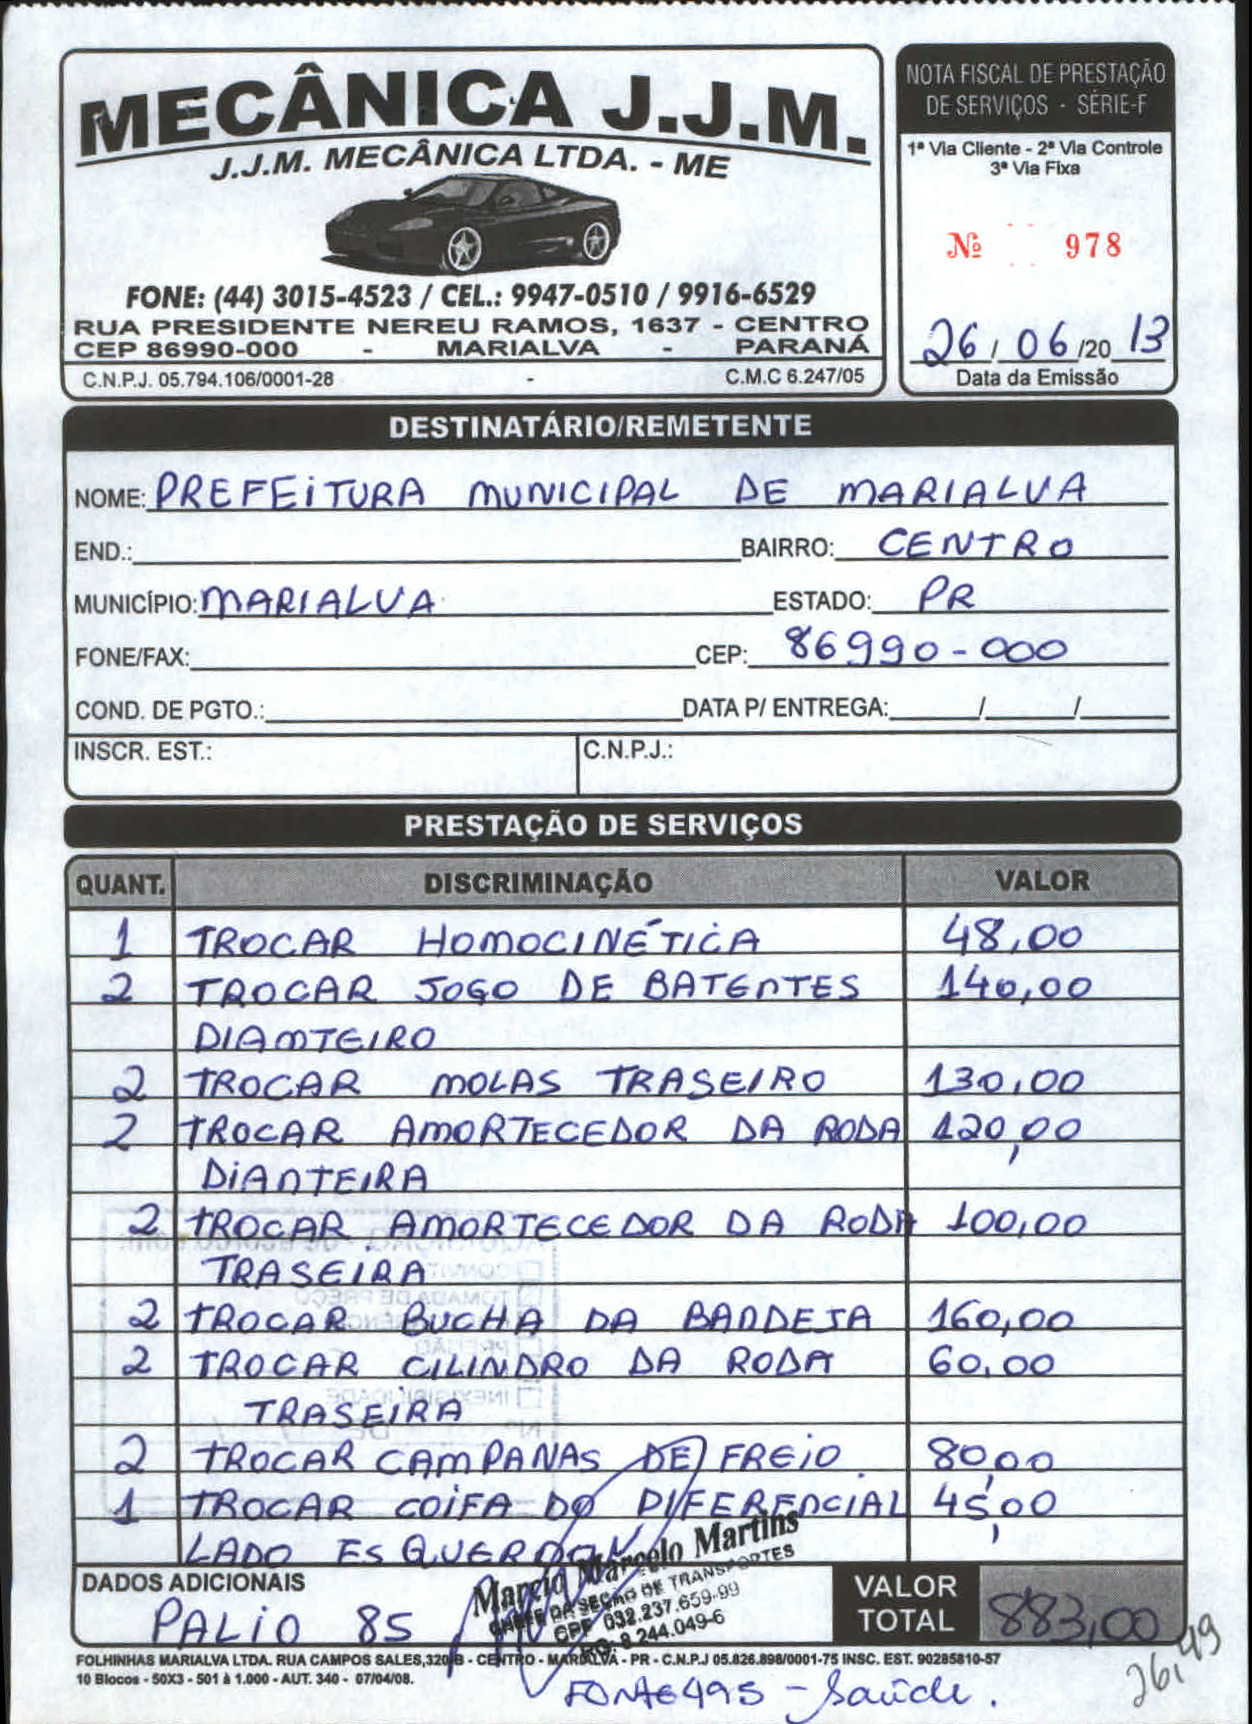 MECÂNICA J.J.M.
J.J.M. MECÂNICA LTDA. - ME
FONE: (44) 3015-4523 / CEL.: 9947-0510 / 9916-6529
RUA PRESIDENTE NEREU RAMOS, 1637 - CENTRO
CEP 86990-000 - MARIALVA - PARANÁ
C.N.P.J. 05.794.106/0001-28 - C.M.C 6.247/05
NOTA FISCAL DE PRESTAÇÃO
DE SERVIÇOS - SÉRIE-F
1ª Via Cliente - 2ª Via Controle
3ª Via Fixa
Nº 978
26/06/2013
Data da Emissão
DESTINATÁRIO/REMETENTE
NOME: PREFEITURA MUNICIPAL DE MARIALVA
END.: BAIRRO: CENTRO
MUNICÍPIO: MARIALVA ESTADO: PR
FONE/FAX: CEP: 86990-000
COND. DE PGTO.: DATA P/ ENTREGA: / /
INSCR. EST.: C.N.P.J.:
PRESTAÇÃO DE SERVIÇOS
QUANT. DISCRIMINAÇÃO VALOR
1 TROCAR HOMOCINÉTICA 48,00
2 TROCAR JOGO DE BATENTES 140,00
DIAMTEIRO
2 TROCAR MOLAS TRASEIRO 130,00
2 TROCAR AMORTECEDOR DA RODA 120,00
DIANTEIRA
2 TROCAR AMORTECEDOR DA RODA 100,00
TRASEIRA
2 TROCAR BUCHA DA BANDEJA 160,00
2 TROCAR CILINDRO DA RODA 60,00
TRASEIRA
2 TROCAR CAMPANAS DE FREIO 80,00
1 TROCAR COIFA DO DIFERENCIAL 45,00
LADO ESQUERDO
Marcio Marcelo Martins
CHEFE DA SEÇÃO DE TRANSPORTES
CPF 032.237.659-99
RG: 8.244.049-6
DADOS ADICIONAIS
PALIO 85
VALOR TOTAL 883,00
FOLHINHAS MARIALVA LTDA. RUA CAMPOS SALES,320-B - CENTRO - MARIALVA - PR - C.N.P.J 05.826.898/0001-75 INSC. EST. 90285810-57
10 Blocos - 50X3 - 501 à 1.000 - AUT. 340 - 07/04/08.
FONTE 495 - Saúde.
26,49